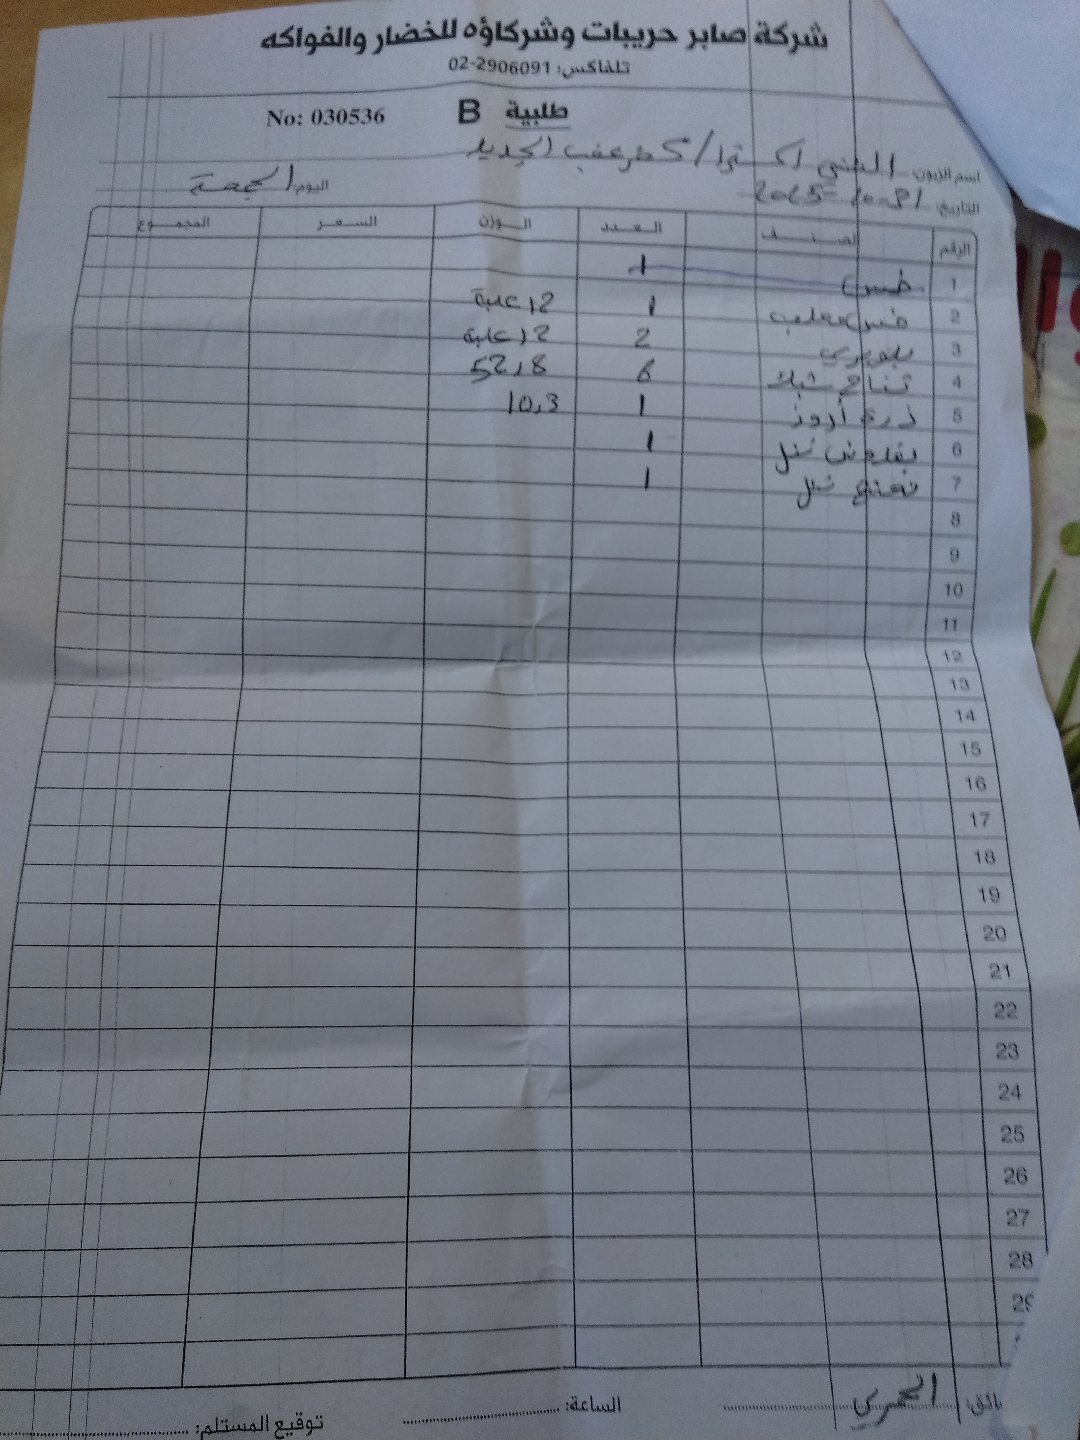 شركة صابر حريبات وشركاؤه للخضار والفواكه
تلفاكس: 02-2906091
طلبية B No: 030536
اسم الزبون: اكسترا / كفر عقب الجديد
التاريخ: 31-10-2025 اليوم: الجمعة
الرقم الصنف العدد الوزن السعر المجموع
1 خس 1
2 خس معلب 1 12 علبة
3 بلوبيري 2 12 علبة
4 تفاح 6 52,8
5 ذرة 1 10,3
6 بقدونس نخل 1
7 نعنع نخل 1
8
9
10
11
12
13
14
15
16
17
18
19
20
21
22
23
24
25
26
27
28
29
ائق: العمري الساعة: توقيع المستلم: